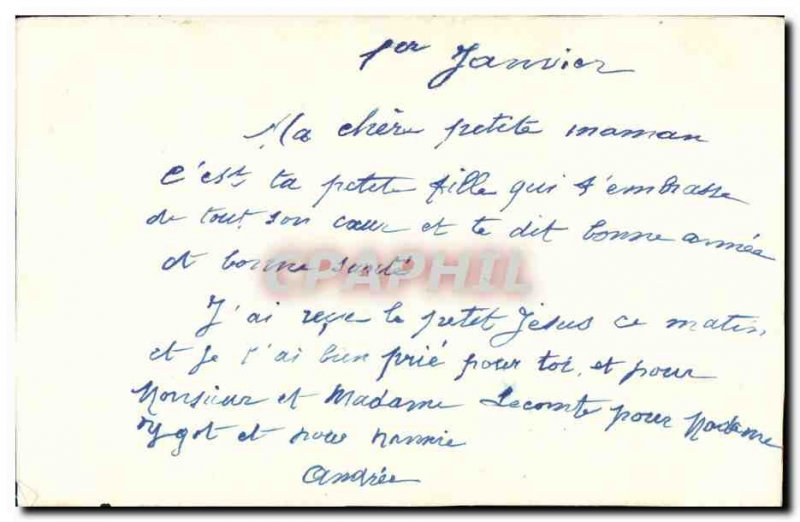 1er Janvier
Ma chère petite maman
C'est ta petite fille qui t'embrasse
de tout son cœur et te dit bonne année
et bonne santé
CPAPHIL
J'ai reçu le petit Jesus ce matin,
et je l'ai bien prié pour toi, et pour
Monsieur et Madame Lecomte pour Madame
et pour nannie
Andrée